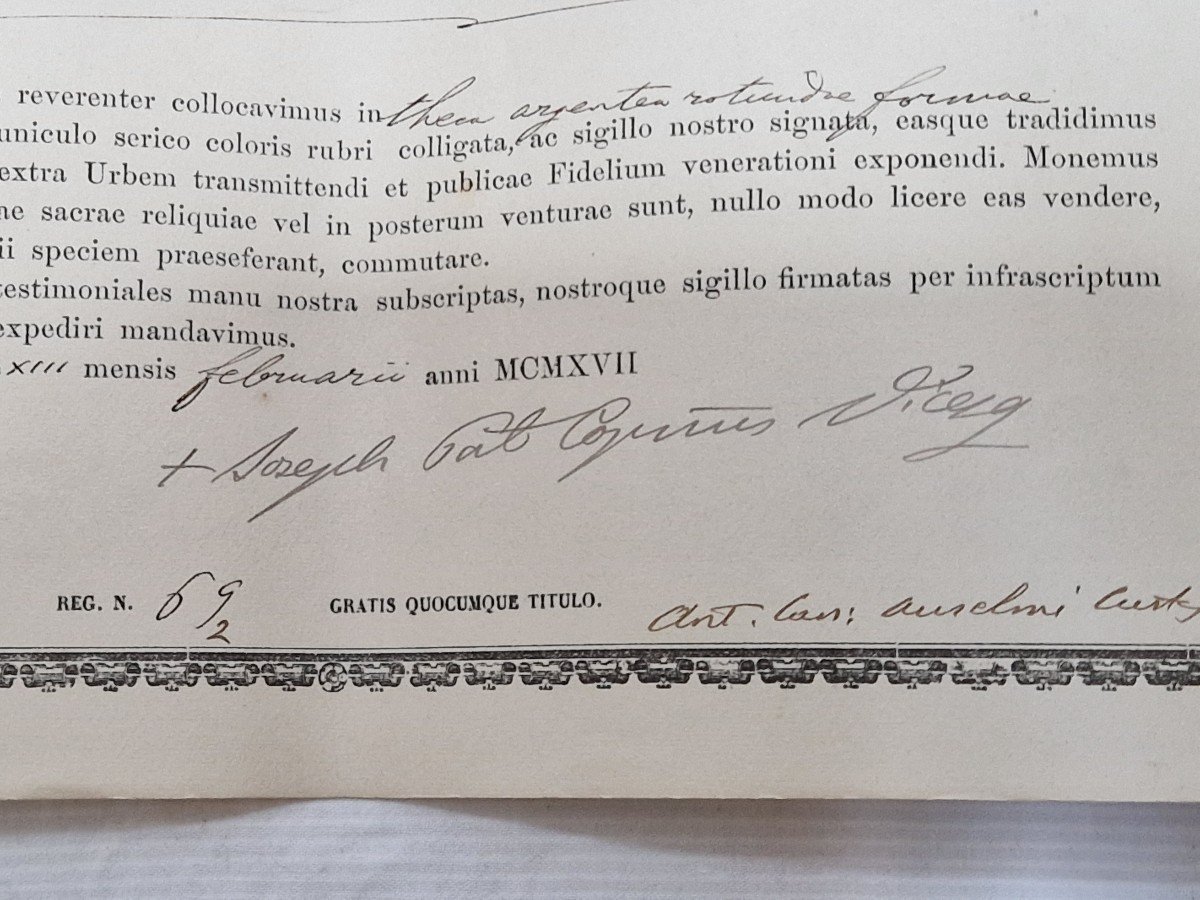 reverenter collocavimus in theca argentea rotundae formae
uniculo serico coloris rubri colligata, ac sigillo nostro signata, easque tradidimus
extra Urbem transmittendi et publicae Fidelium venerationi exponendi. Monemus
ae sacrae reliquiae vel in posterum venturae sunt, nullo modo licere eas vendere,
ii speciem praeseferant, commutare.
testimoniales manu nostra subscriptas, nostroque sigillo firmatas per infrascriptum
expediri mandavimus.
XIII mensis februarii anni MCMXVII
+ Joseph Pat Vicesg
REG. N. 69/2 GRATIS QUOCUMQUE TITULO. Ant. Can: Anselmi Custos